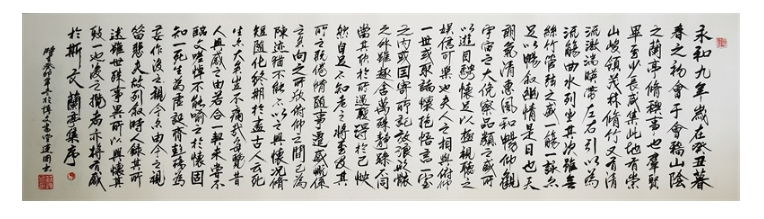 永和九年歲在癸丑暮
春之初會于會稽山陰
之蘭亭修禊事也群賢
畢至少長咸集此地有崇
山峻領茂林修竹又有清
流激湍暎帶左右引以為
流觴曲水列坐其次雖無
絲竹管弦之盛一觴一詠亦
足以暢敘幽情是日也天
朗氣清惠風和暢仰觀
宇宙之大俯察品類之盛所
以遊目騁懷足以極視聽之
娛信可樂也夫人之相與俯仰
一世或取諸懷抱悟言一室
之內或因寄所託放浪形骸
之外雖趣舍萬殊靜躁不同
當其欣於所遇蹔得於己怏
然自足不知老之將至及其
所之既倦情隨事遷感慨係
之矣向之所欣俛仰之間已為
陳迹猶不能不以之興懷況脩
短隨化終期於盡古人云死
生亦大矣豈不痛哉每覽昔
人興感之由若合一契未嘗不
臨文嗟悼不能喻之於懷固
知一死生為虛誕齊彭殤為
妄作後之視今亦由今之視
昔悲夫故列敘時人錄其所
述雖世殊事異所以興懷其
致一也後之攬者亦將有感
於斯文蘭亭集序